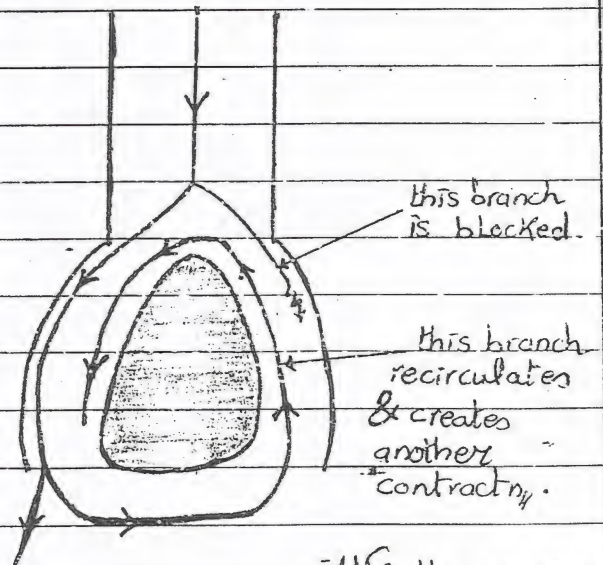 this branch
is blocked.
this branch
recirculates
& creates
another
"contractn".